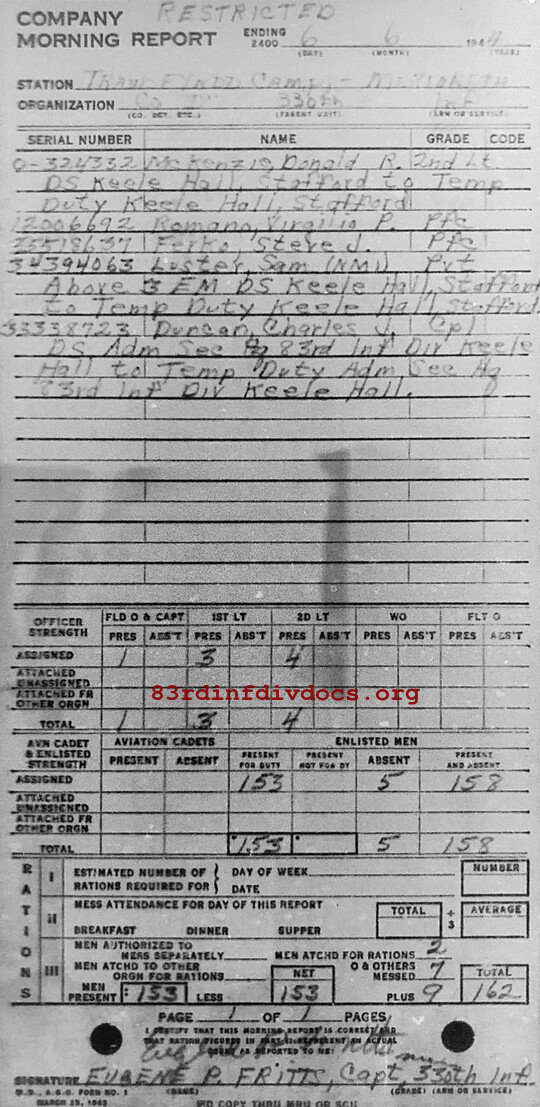 COMPANY RESTRICTED
MORNING REPORT ENDING 2400 6 6 1944
(DAY) (MONTH) (YEAR)
STATION TRAWSFYNDD CAMP - MERIONETH
ORGANIZATION Co "D" 330th Inf
(CO. DET. ETC.) (PARENT UNIT) (ARM OR SERVICE)
SERIAL NUMBER NAME GRADE CODE
O-324332 McKenzie, Donald R. 2nd Lt
DS Keele Hall, Stafford to Temp
Duty Keele Hall, Stafford
12006692 Romano, Virgilio P. Pfc
35518637 Ferko, Steve J. Pfc
34394063 Luster, Sam (NMI) Pvt
Above 3 EM DS Keele Hall, Stafford
to Temp Duty Keele Hall, Stafford.
33338723 Duncan, Charles J. Cpl
DS, Adm Sec Hq 83rd Inf Div Keele
Hall to Temp Duty Adm Sec Hq
83rd Inf Div Keele Hall.
OFFICER STRENGTH FLD O & CAPT 1ST LT 2D LT WO FLT O
PRES ABS'T PRES ABS'T PRES ABS'T PRES ABS'T PRES ABS'T
ASSIGNED 1 3 4
ATTACHED UNASSIGNED
ATTACHED FR OTHER ORGN
83rdinfdivdocs.org
TOTAL 1 3 4
AVN CADET & ENLISTED STRENGTH AVIATION CADETS ENLISTED MEN
PRESENT ABSENT PRESENT FOR DUTY PRESENT NOT FOR DY ABSENT PRESENT AND ABSENT
ASSIGNED 153 5 158
ATTACHED UNASSIGNED
ATTACHED FR OTHER ORGN
TOTAL 153 5 158
RATIONS
I ESTIMATED NUMBER OF RATIONS REQUIRED FOR { DAY OF WEEK NUMBER
DATE
II MESS ATTENDANCE FOR DAY OF THIS REPORT TOTAL ÷ 3 AVERAGE
BREAKFAST DINNER SUPPER
III MEN AUTHORIZED TO MESS SEPARATELY MEN ATCHD FOR RATIONS 2
MEN ATCHD TO OTHER ORGN FOR RATIONS NET O & OTHERS MESSED 7 TOTAL
MEN PRESENT 153 LESS 153 PLUS 9 162
PAGE 1 OF 1 PAGES
I CERTIFY THAT THIS MORNING REPORT IS CORRECT AND
THAT RATION FIGURES IN PART III REPRESENT AN ACTUAL
COUNT AS REPORTED TO ME:
SIGNATURE EUGENE P. FRITTS, Capt, 330th Inf.
W.D., A.G.O. FORM NO. 1 (NAME) (GRADE) (ARM OR SERVICE)
MARCH 25, 1943
COPY THRU MRU OR SCU